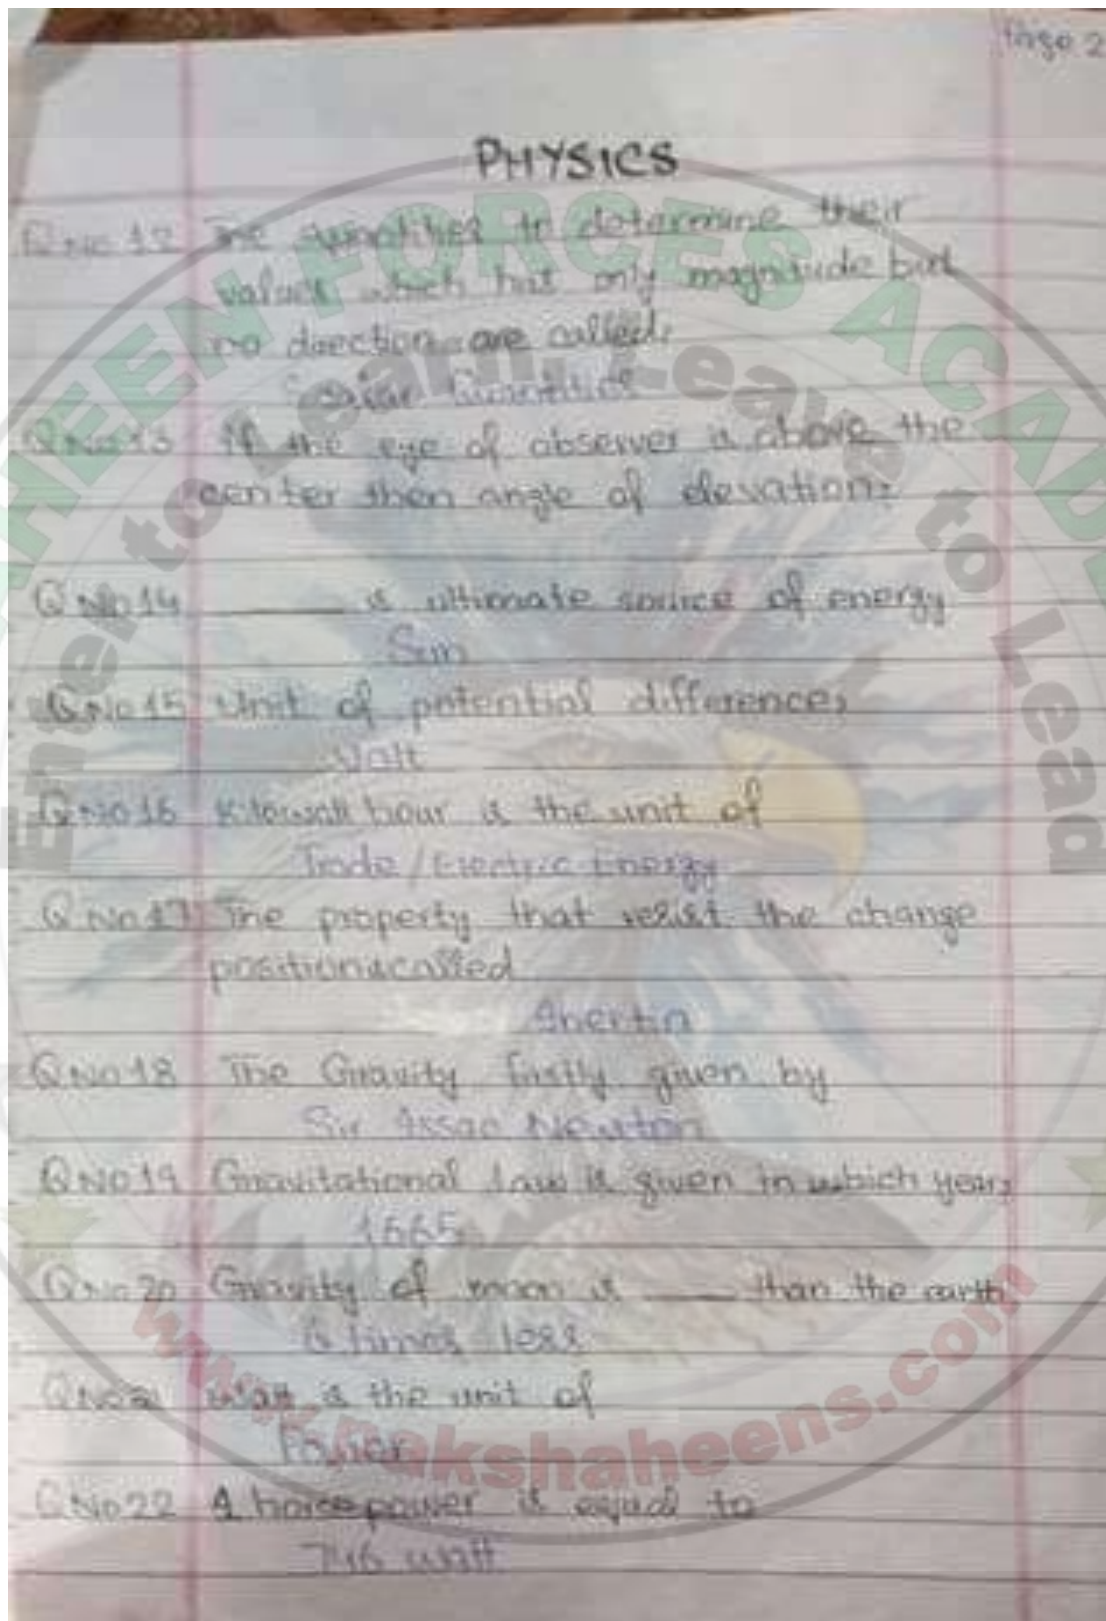 Page 2
PHYSICS
Q No 12 The quantities to determine their
values which has only magnitude but
no direction are called:
Scalar Quantities
Q No 13 if the eye of observer is above the
center then angle of elevation:
Q No 14 ______ is ultimate source of energy
Sun
Q No 15 Unit of potential difference:
Volt
Q No 16 Kilowatt hour is the unit of
Trade / Electric Energy
Q No 17 The property that resist the change
position is called
Inertia
Q No 18 The Gravity firstly given by
Sir Issac Newton
Q No 19 Gravitational law is given in which year:
1665
Q No 20 Gravity of moon is ____ than the earth
6 times less
Q No 21 Watt is the unit of
Power
Q No 22 1 horse power is equal to
746 watt
SHAHEEN FORCES ACADEMY
Enter to Learn, Leave to Lead
www.pakshaheens.com